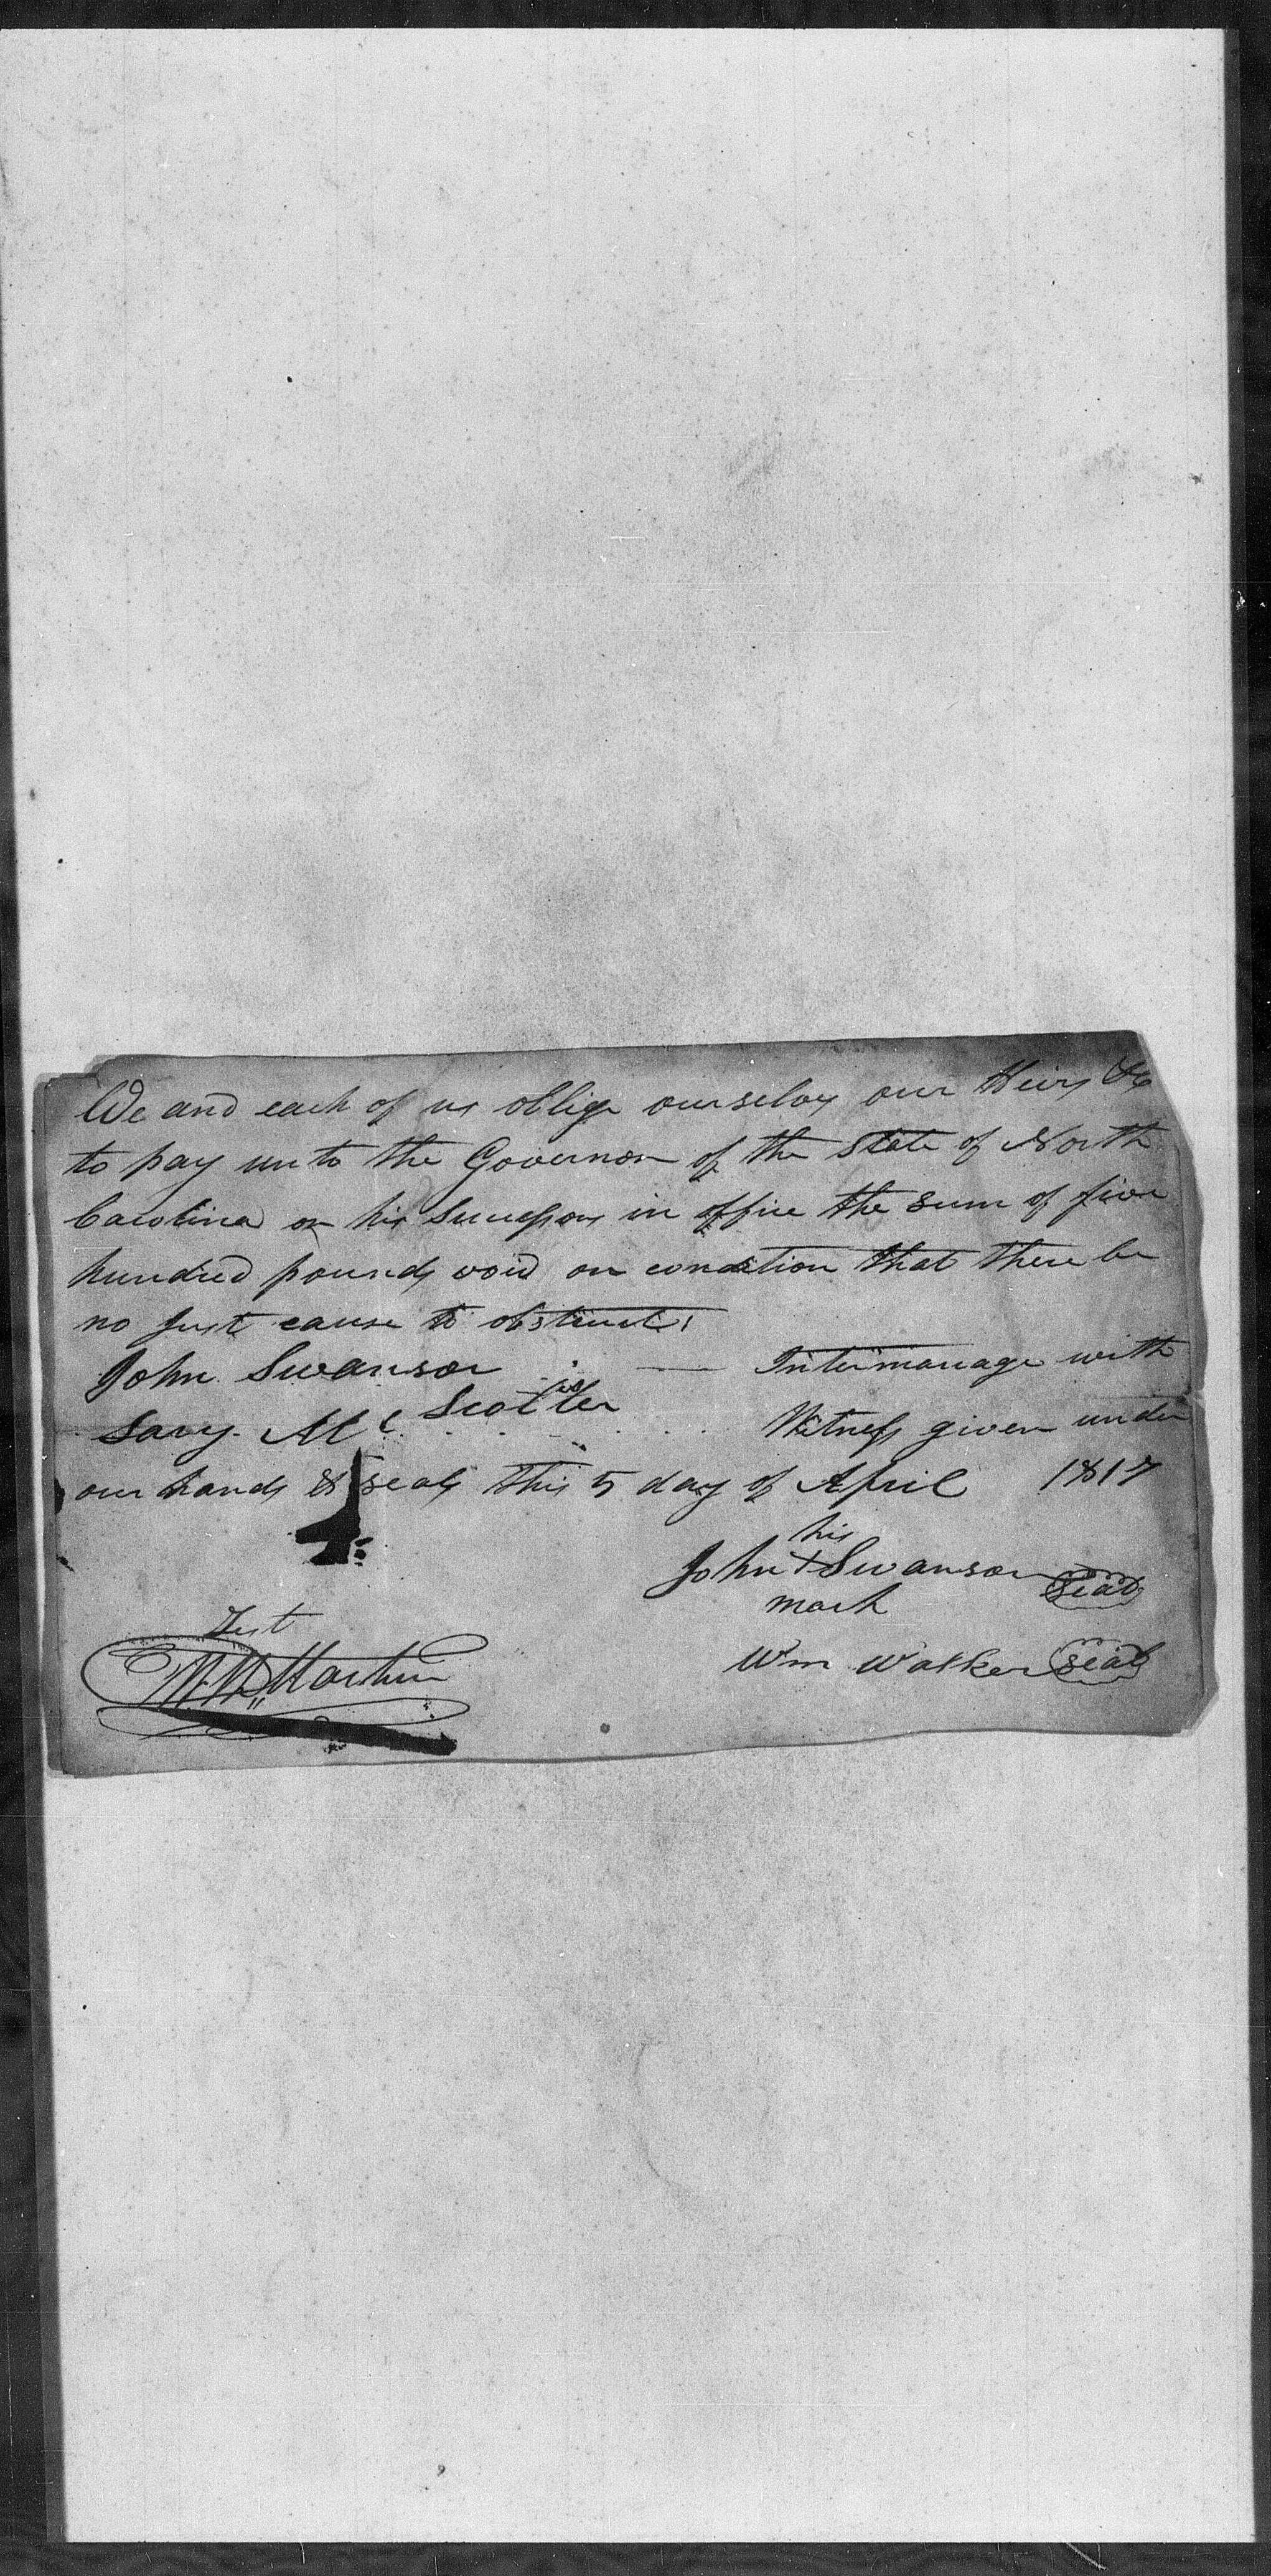 We and each of us oblige ourselves our Heirs &c
to pay unto the Governor of the State of North
Carolina or his Successors in office the sum of five
hundred pounds void on condition that there be
no just cause to obstruct
John Swanson — Intermarriage with
Mc Witness given under
our hands & seals this 5 day of April 1817
his
John + Swanson Seal
mark
Test
Wm Walker Seal
Martin